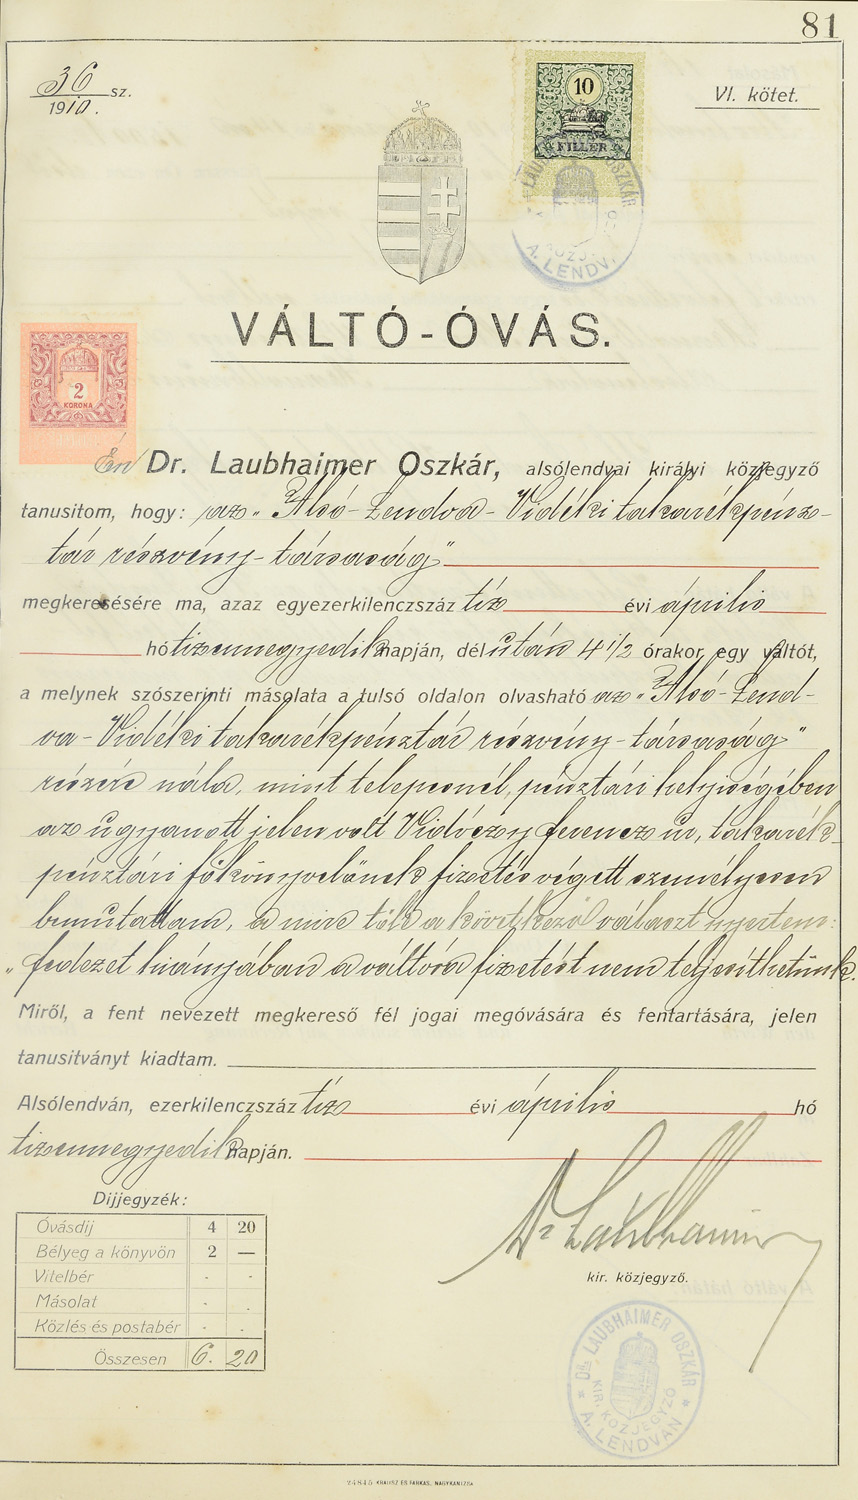 81
36
1910. sz.
VI. kötet.
10
FILLÉR
Dr LAUBHAIMER OSZKÁR
KIR. KÖZJEGYZŐ
A. LENDVÁN
VÁLTÓ-ÓVÁS.
2
KORONA
Én Dr. Laubhaimer Oszkár, alsólendvai királyi közjegyző
tanusitom, hogy: az „Alsó-Lendva-Vidéki takarékpénz-
tár részvény-társaság"
megkeresésére ma, azaz egyezerkilenczszáz tíz évi április
hó tizennegyedik napján, dél után 4 1/2 órakor egy váltót,
a melynek szószerinti másolata a tulsó oldalon olvasható az „Alsó-Lend-
va-Vidéki takarékpénztár részvény-társaság"
részére nála, mint telepesnél, pénztári helyiségében
az ugyanott jelen volt Vidóczy Ferencz úr, takarék-
pénztári főkönyvelőnek fizetés végett személyesen
bemutattam, a mire tőle a következő választ nyertem:
„fedezet hiányában a váltóra fizetést nem teljesíthetünk.
Miről, a fent nevezett megkereső fél jogai megóvására és fentartására, jelen
tanusitványt kiadtam.
Alsólendván, ezerkilenczszáz tíz évi április hó
tizennegyedik napján.
Dijjegyzék:
Óvásdij 4 20
Bélyeg a könyvön 2 —
Vitelbér - -
Másolat - -
Közlés és postabér - -
Összesen 6. 20
Dr Laubhaimer
kir. közjegyző.
Dr. LAUBHAIMER OSZKÁR
KIR. KÖZJEGYZŐ
A. LENDVÁN
24845 KRAUSZ ÉS FARKAS, NAGYKANIZSA